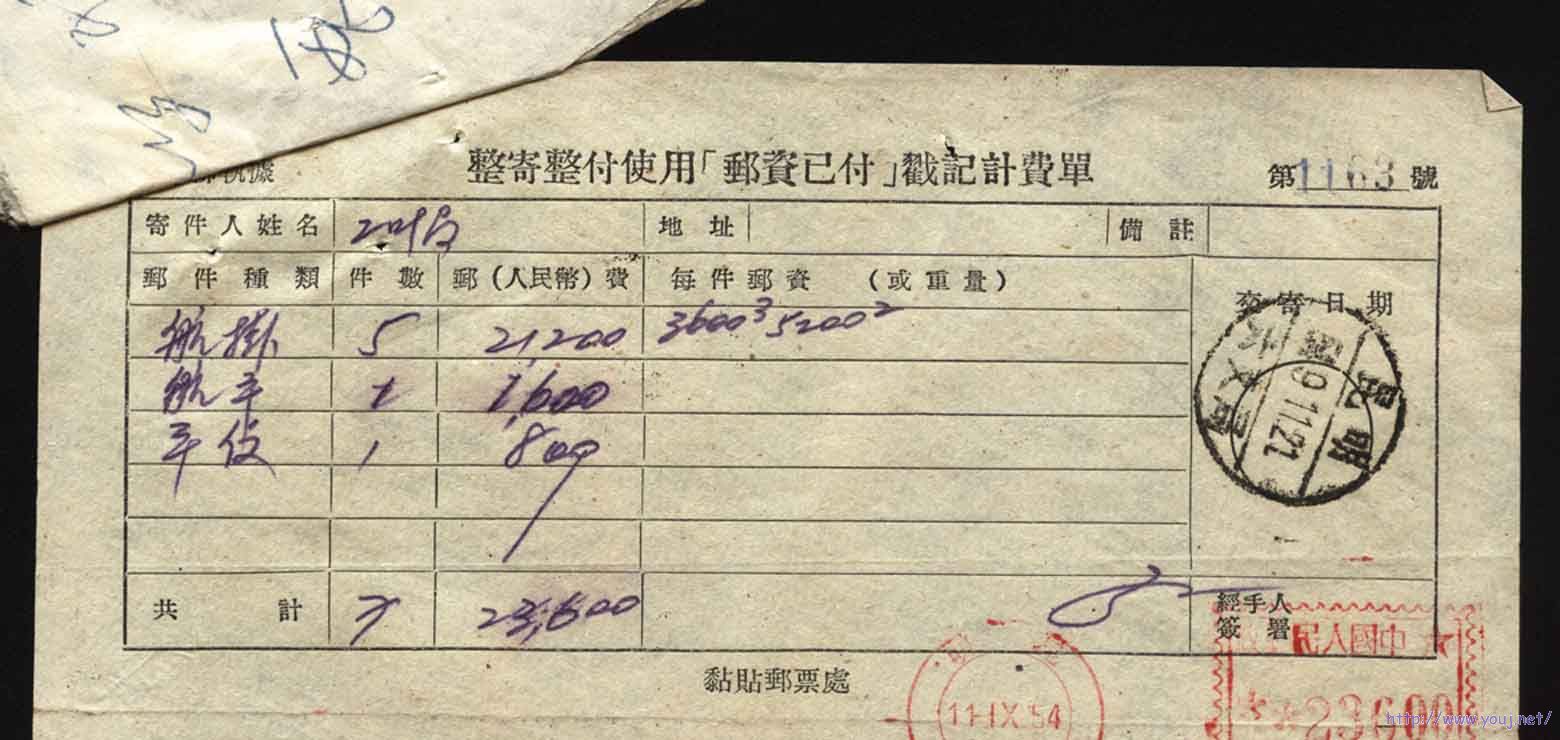 整寄整付使用「郵資已付」戳記計費單
第1163號
寄件人姓名 地址 備註
郵件種類 件數 郵(人民幣)費 每件郵資 (或重量) 交寄日期
航掛 5 21,200 3600³ 5200²
航平 1 1,600
平信 1 800
昆明
9.11.21
共計 7 23,600
經手人
簽署
中國人民
黏貼郵票處
11·IX·54
23600
http://www.youj.net/